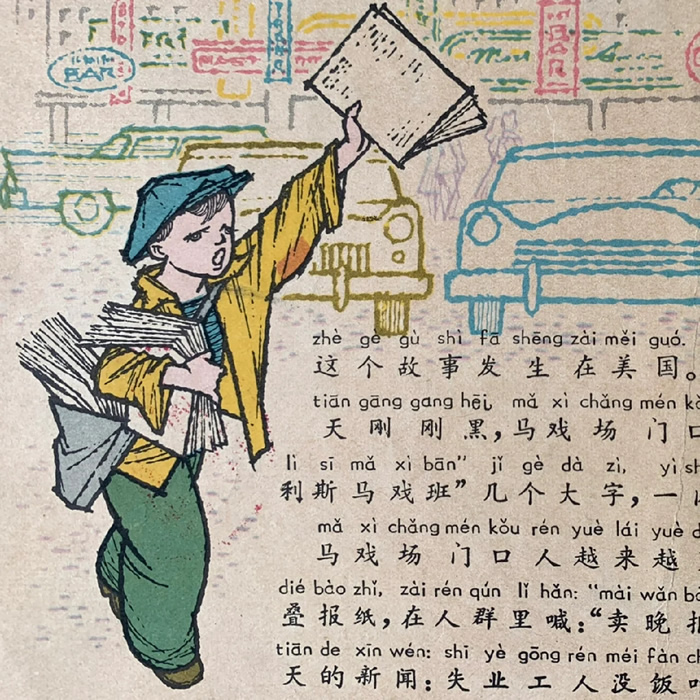 BAR
BAR
zhè gè gù shì fā shēng zài měi guó.
这个故事发生在美国。
tiān gāng gang hēi, mǎ xì chǎng mén kǒ
天刚刚黑,马戏场门口
lì sī mǎ xì bān" jǐ gè dà zì, yì sh
利斯马戏班”几个大字,一
mǎ xì chǎng mén kǒu rén yuè lái yuè d
马戏场门口人越来越
dié bào zhǐ, zài rén qún lǐ hǎn: "mài wǎn bà
叠报纸,在人群里喊:“卖晚报
tiān de xīn wén: shī yè gōng rén méi fàn ch
天的新闻:失业工人没饭吃